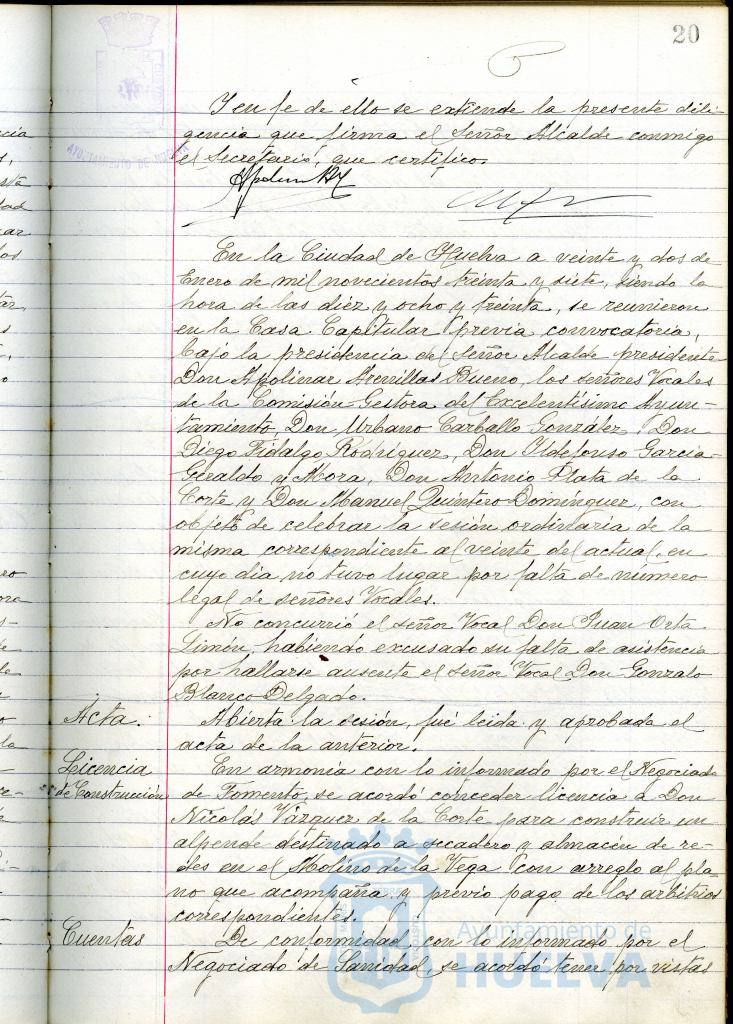 20
Y en fe de ello se extiende la presente dili-
gencia que firma el Señor Alcalde conmigo
el Secretario, que certifico.
AYUNTAMIENTO DE HUELVA
En la Ciudad de Huelva a veinte y dos de
Enero de mil novecientos treinta y siete, siendo la
hora de las diez y ocho y treinta, se reunieron
en la Casa Capitular previa convocatoria,
bajo la presidencia del Señor Alcalde presidente
Don Apolinar Arenillas Bueno, los señores Vocales
de la Comisión Gestora del Excelentísimo Ayun-
tamiento Don Urbano Carballo González, Don
Diego Fidalgo Rodríguez, Don Ildefonso García-
Geraldo y Mora, Don Antonio Plata de la
Corte y Don Manuel Quintero Domínguez, con
objeto de celebrar la sesión ordinaria de la
misma correspondiente al veinte del actual, en
cuyo día no tuvo lugar por falta de número
legal de señores Vocales.
No concurrió el señor Vocal Don Juan Orta
Limón, habiendo excusado su falta de asistencia
por hallarse ausente el señor Vocal Don Gonzalo
Blanco Delgado.
Acta.
Abierta la sesión, fué leida y aprobada el
acta de la anterior.
Licencia
de Construcción
En armonía con lo informado por el Negociado
de Fomento, se acordó conceder licencia a Don
Nicolás Vázquez de la Corte para construir un
alpende destinado a secadero y almacén de re-
des en el Molino de la Vega con arreglo al pla-
no que acompaña y previo pago de los arbitrios
correspondientes.
Cuentas
De conformidad con lo informado por el
Negociado de Sanidad, se acordó tener por vistas
Ayuntamiento de
HUELVA